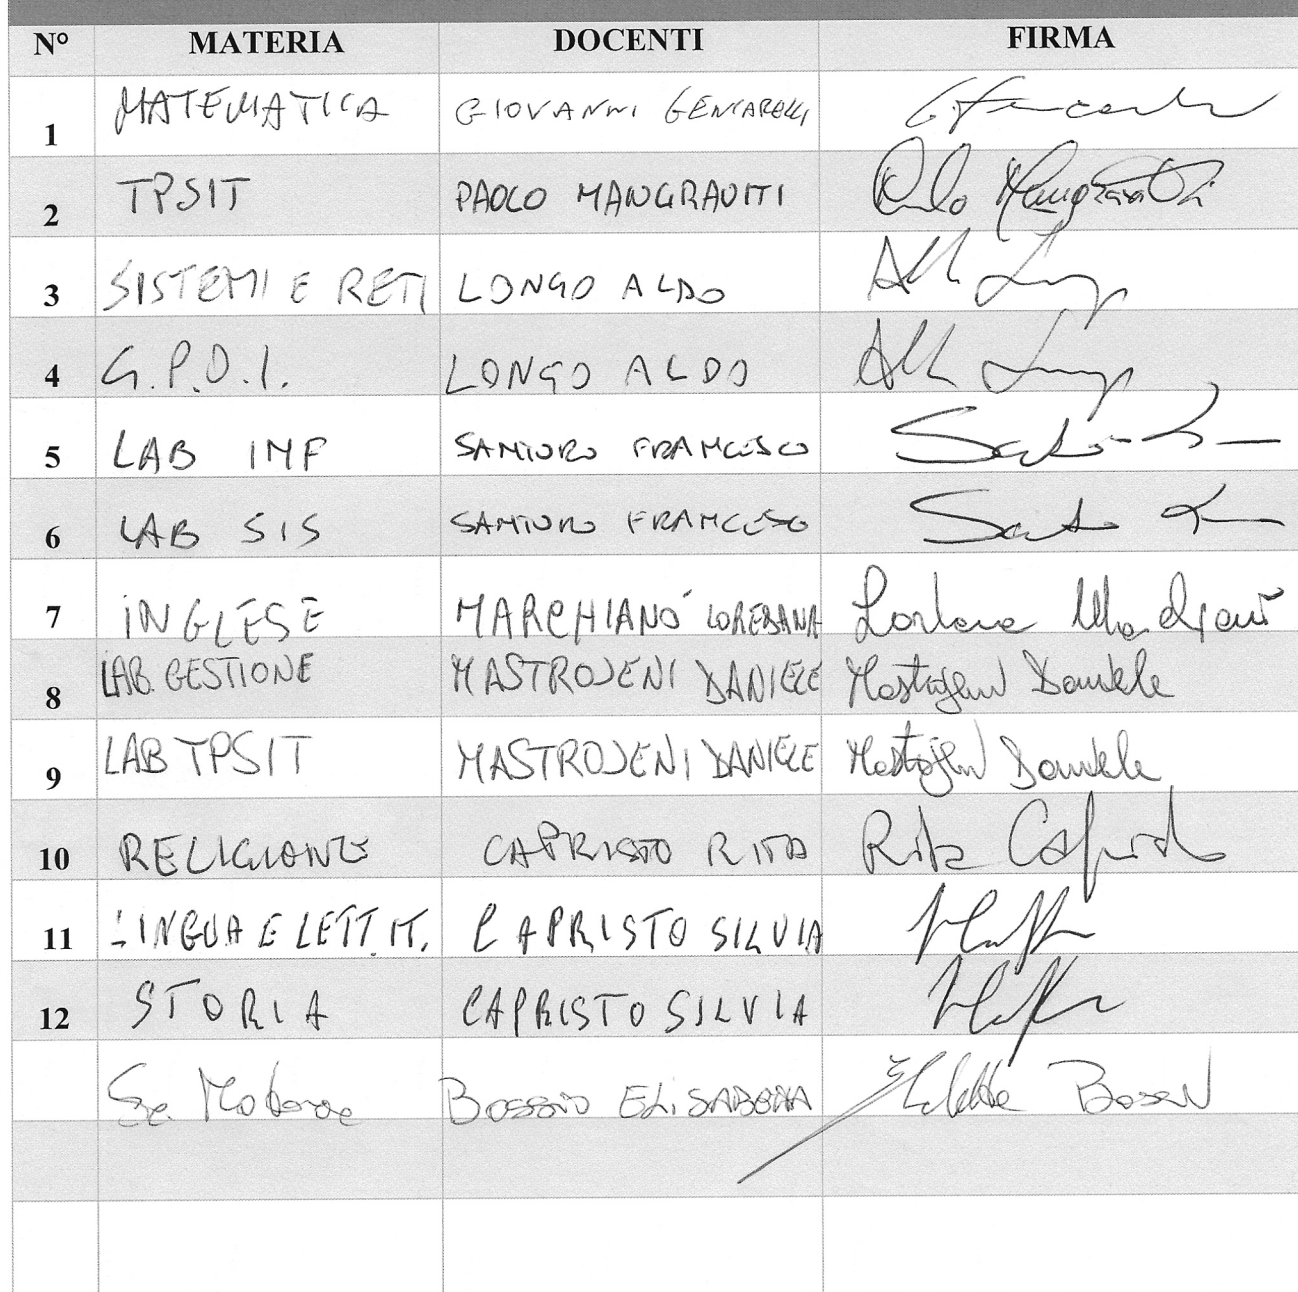 N° MATERIA DOCENTI FIRMA
1 MATEMATICA GIOVANNI GENCARELLI
2 TPSIT PAOLO MANGRAVITI Paolo Mangraviti
3 SISTEMI E RETI LONGO ALDO Aldo Longo
4 G.P.O.I. LONGO ALDO Aldo Longo
5 LAB INF SANTORO FRANCESCO
6 LAB SIS SANTORO FRANCESCO
7 INGLESE MARCHIANÒ LOREDANA Loredana Marchianò
8 LAB. GESTIONE MASTROJENI DANIELE Mastrojeni Daniele
9 LAB TPSIT MASTROJENI DANIELE Mastrojeni Daniele
10 RELIGIONE CAPRISTO RITA Rita Capristo
11 LINGUA E LETT. IT. CAPRISTO SILVIA
12 STORIA CAPRISTO SILVIA
Sc. Motorie BOSSIO ELISABETTA Elisabetta Bossio